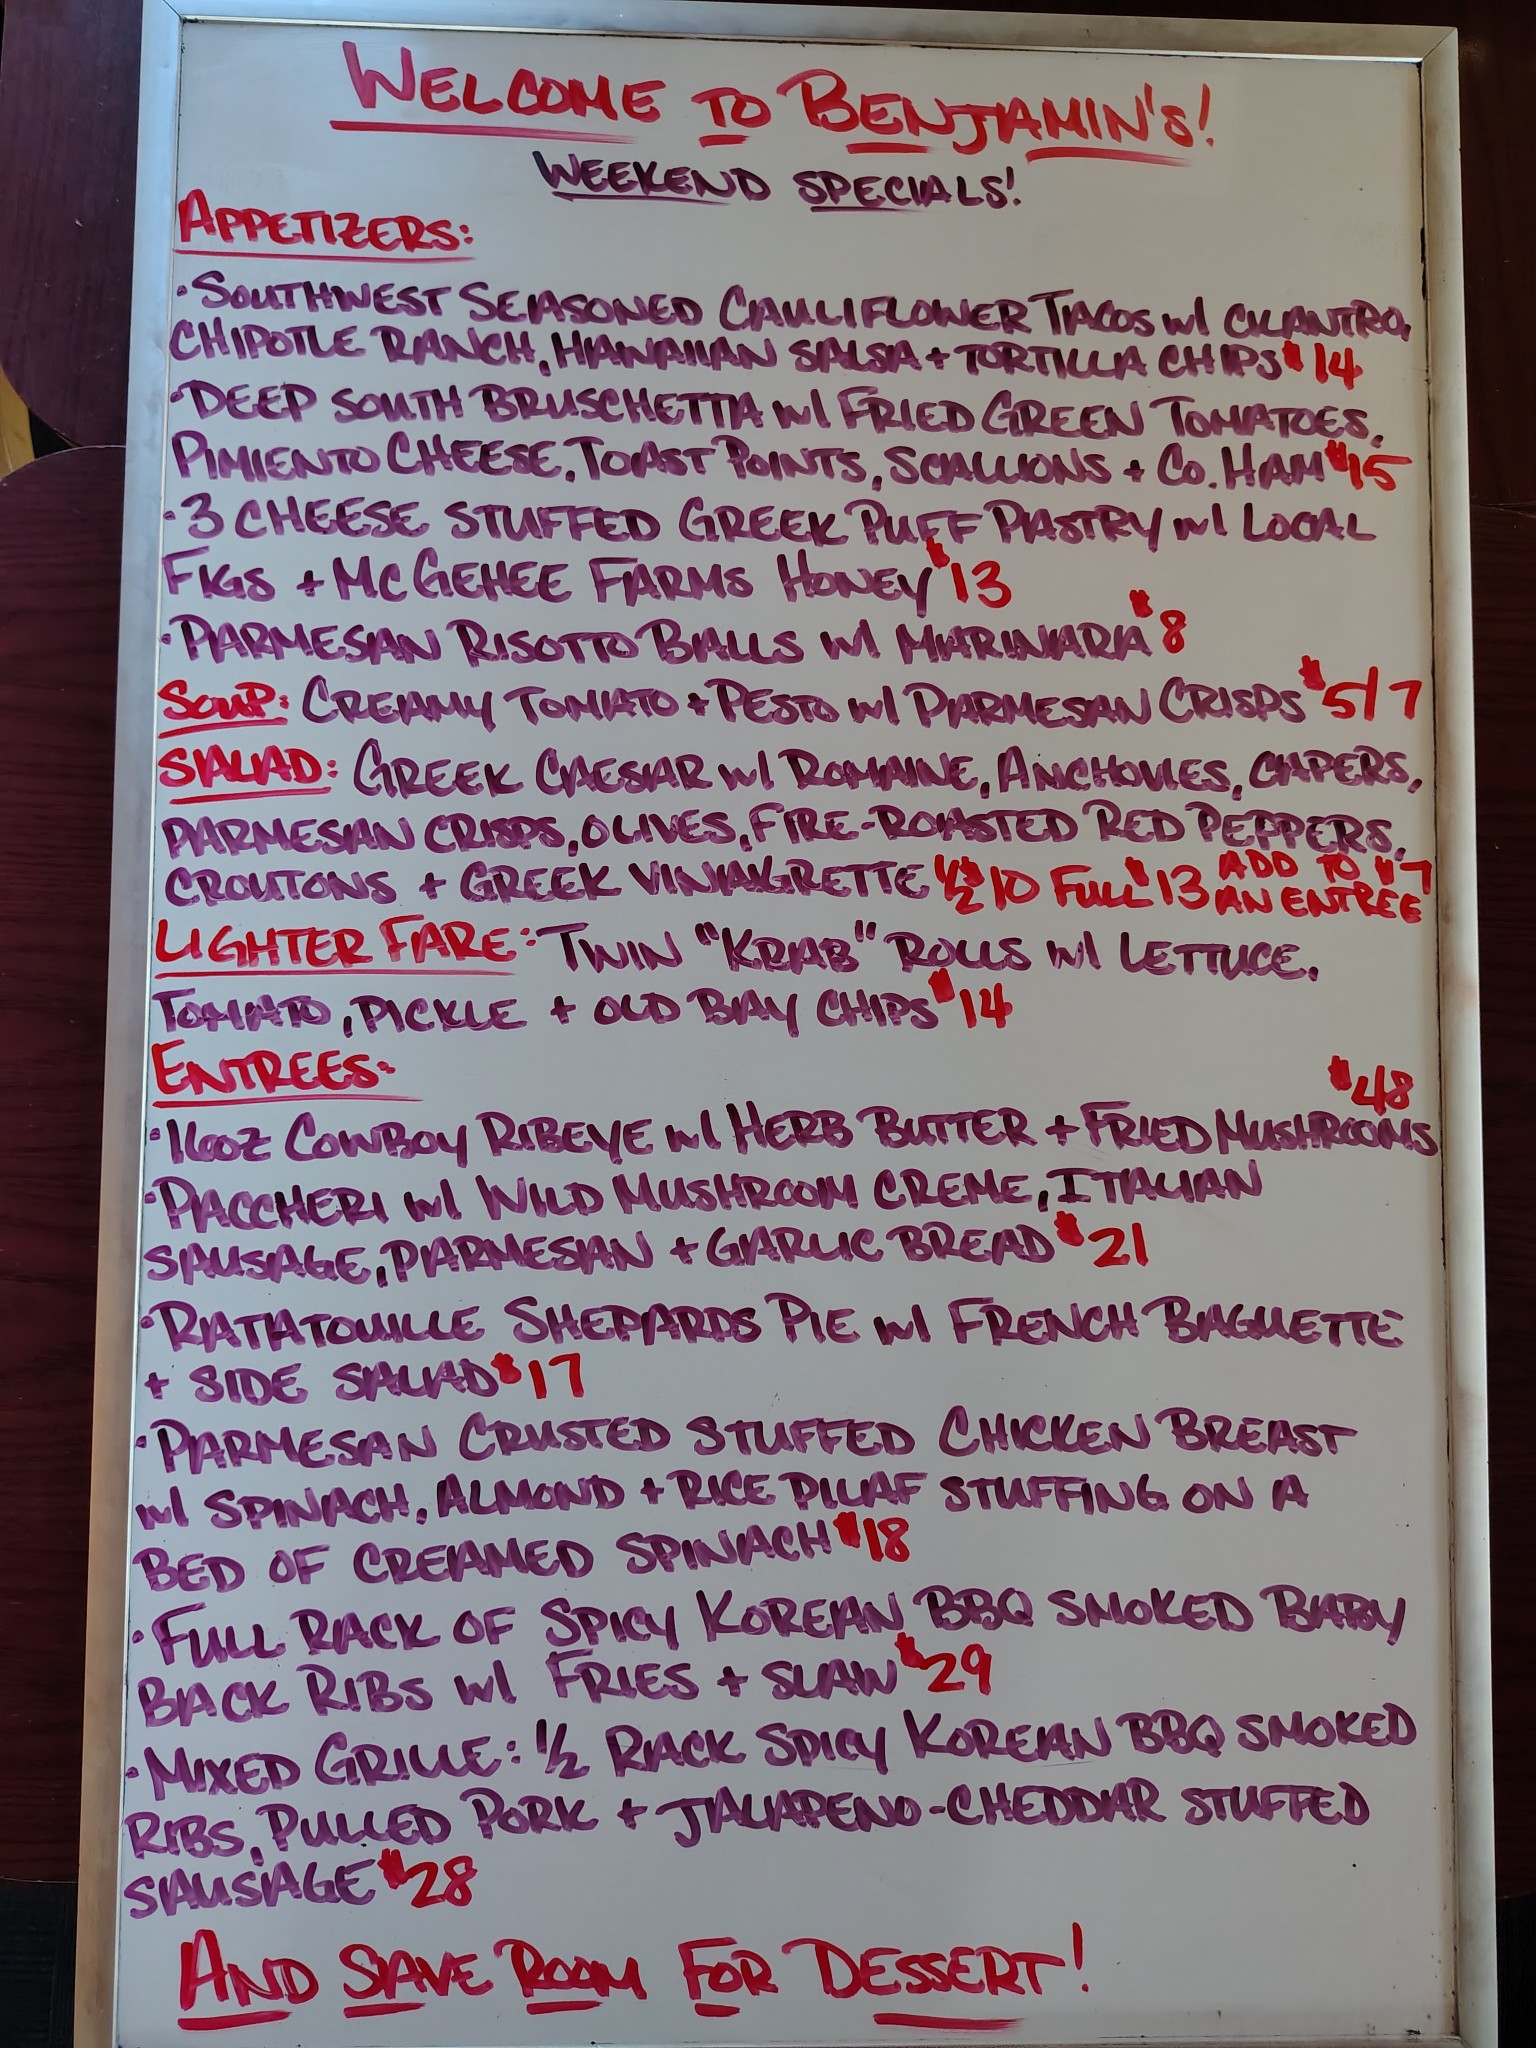 WELCOME TO BENJAMIN'S!
WEEKEND SPECIALS!
APPETIZERS:
• SOUTHWEST SEASONED CAULIFLOWER TACOS w/ CILANTRO,
CHIPOTLE RANCH, HAWAIIAN SALSA + TORTILLA CHIPS $14
• DEEP SOUTH BRUSCHETTA w/ FRIED GREEN TOMATOES,
PIMIENTO CHEESE, TOAST POINTS, SCALLIONS + CO. HAM $15
• 3 CHEESE STUFFED GREEK PUFF PASTRY w/ LOCAL
FIGS + McGEHEE FARMS HONEY $13
• PARMESAN RISOTTO BALLS w/ MARINARA $8
SOUP: CREAMY TOMATO + PESTO w/ PARMESAN CRISPS $5/7
SALAD: GREEK CAESAR w/ ROMAINE, ANCHOVIES, CAPERS,
PARMESAN CRISPS, OLIVES, FIRE-ROASTED RED PEPPERS,
CROUTONS + GREEK VINIAGRETTE 1/2 $10 FULL $13 ADD TO AN ENTREE $7
LIGHTER FARE: TWIN "KRAB" ROLLS w/ LETTUCE,
TOMATO, PICKLE + OLD BAY CHIPS $14
ENTREES:
• 16oz COWBOY RIBEYE w/ HERB BUTTER + FRIED MUSHROOMS $48
• PACCHERI w/ WILD MUSHROOM CREME, ITALIAN
SAUSAGE, PARMESAN + GARLIC BREAD $21
• RATATOUILLE SHEPARDS PIE w/ FRENCH BAGUETTE
+ SIDE SALAD $17
• PARMESAN CRUSTED STUFFED CHICKEN BREAST
w/ SPINACH, ALMOND + RICE PILAF STUFFING ON A
BED OF CREAMED SPINACH $18
• FULL RACK OF SPICY KOREAN BBQ SMOKED BABY
BACK RIBS w/ FRIES + SLAW $29
• MIXED GRILLE: 1/2 RACK SPICY KOREAN BBQ SMOKED
RIBS, PULLED PORK + JALAPENO-CHEDDAR STUFFED
SAUSAGE $28
AND SAVE ROOM FOR DESSERT!